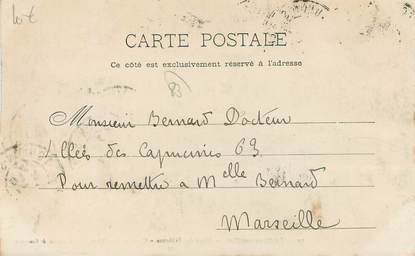 lot
CARTE POSTALE
Ce côté est exclusivement réservé à l'adresse
83
Monsieur Bernard Docteur
Allés des Capucines 63
Pour remettre a Melle Bernard
Marseille